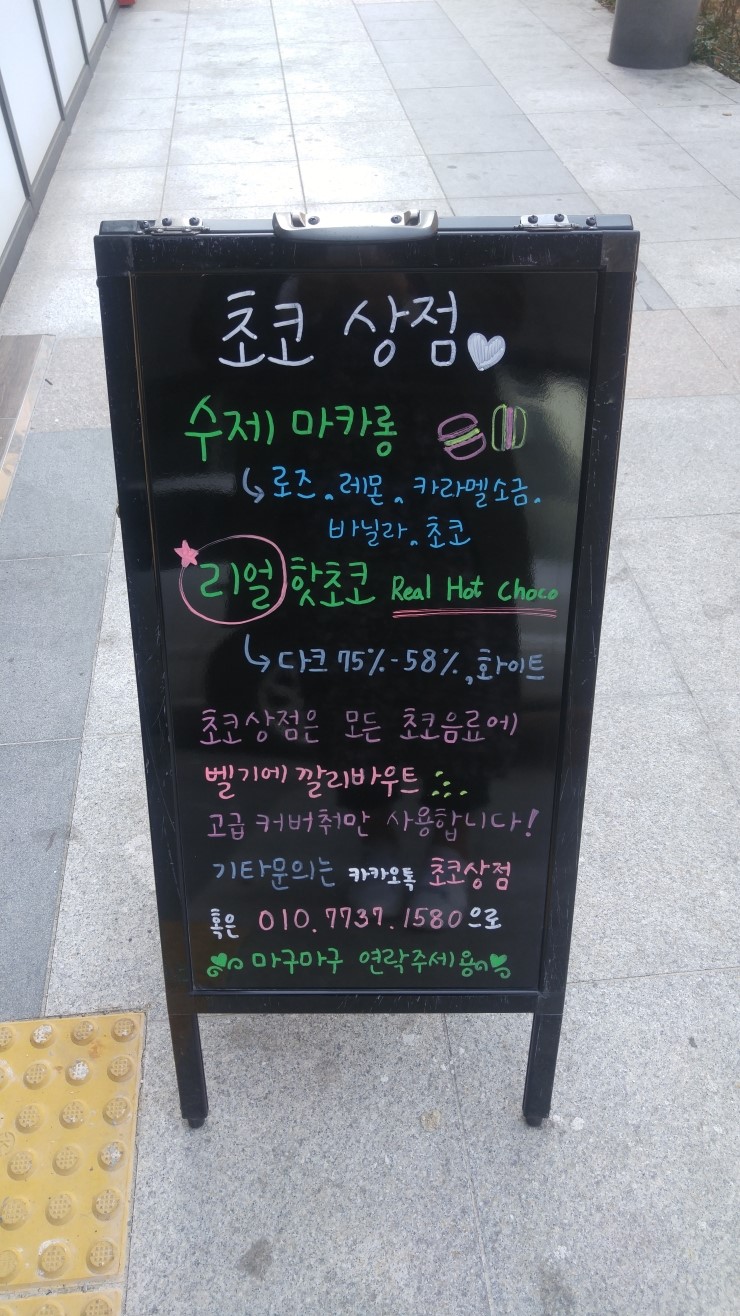 초코 상점
수제 마카롱
로즈. 레몬. 카라멜소금.
바닐라. 초코
리얼 핫초코 Real Hot Choco
다크 75%-58%, 화이트
초코상점은 모든 초코음료에
벨기에 깔리바우트
고급 커버춰만 사용합니다!
기타문의는 카카오톡 초코상점
혹은 010.7737.1580으로
마구마구 연락주세용